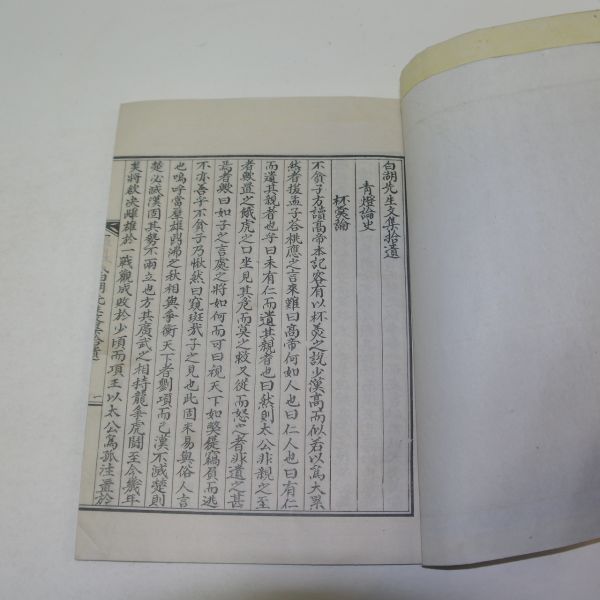 白湖先生文集拾遺
青燈論史
杯羹論
不貪子方讀高帝本記客有以杯羹之說少漢高而似若以爲大累
然者援孟子答桃應之言來難曰高帝何如人也曰仁人也曰有仁
而遺其親者也乎曰未有仁而遺其親者也曰然則太公非親之至
者歟置之餓虎之口坐見其危而莫之救又從而怒之者非遺之甚
焉者歟曰如子之言處之將如何而可曰視天下如弊蹝竊負而逃
不亦善乎不貪子乃愀然曰窺斑哉子之見也此固未易與俗人言
也嗚呼當鹿之秋相與爭衡天下者劉項而已漢不滅楚則
楚必滅漢固其勢不兩立也方其廣武之相持龍爭虎鬪至今幾年
矣將欲決雌雄於一戰觀成敗於少頃而項王以太公爲孤注置於
白湖先生文集拾遺
一